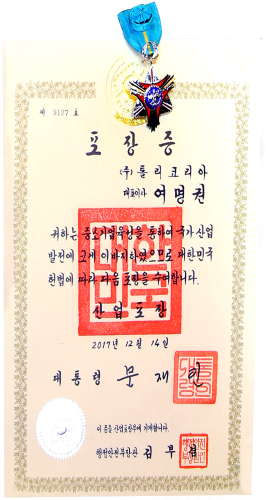 제 9127 호
포장증
(주) 톨리코리아
대표이사 여명권
귀하는 중소기업육성을 통하여 국가 산업
발전에 크게 이바지하였으므로 대한민국
헌법에 따라 다음 포장을 수여합니다.
산업포장
2017년 12월 14일
대통령 문재인
이 증을 산업포장부에 기재합니다.
행정안전부장관 김부겸